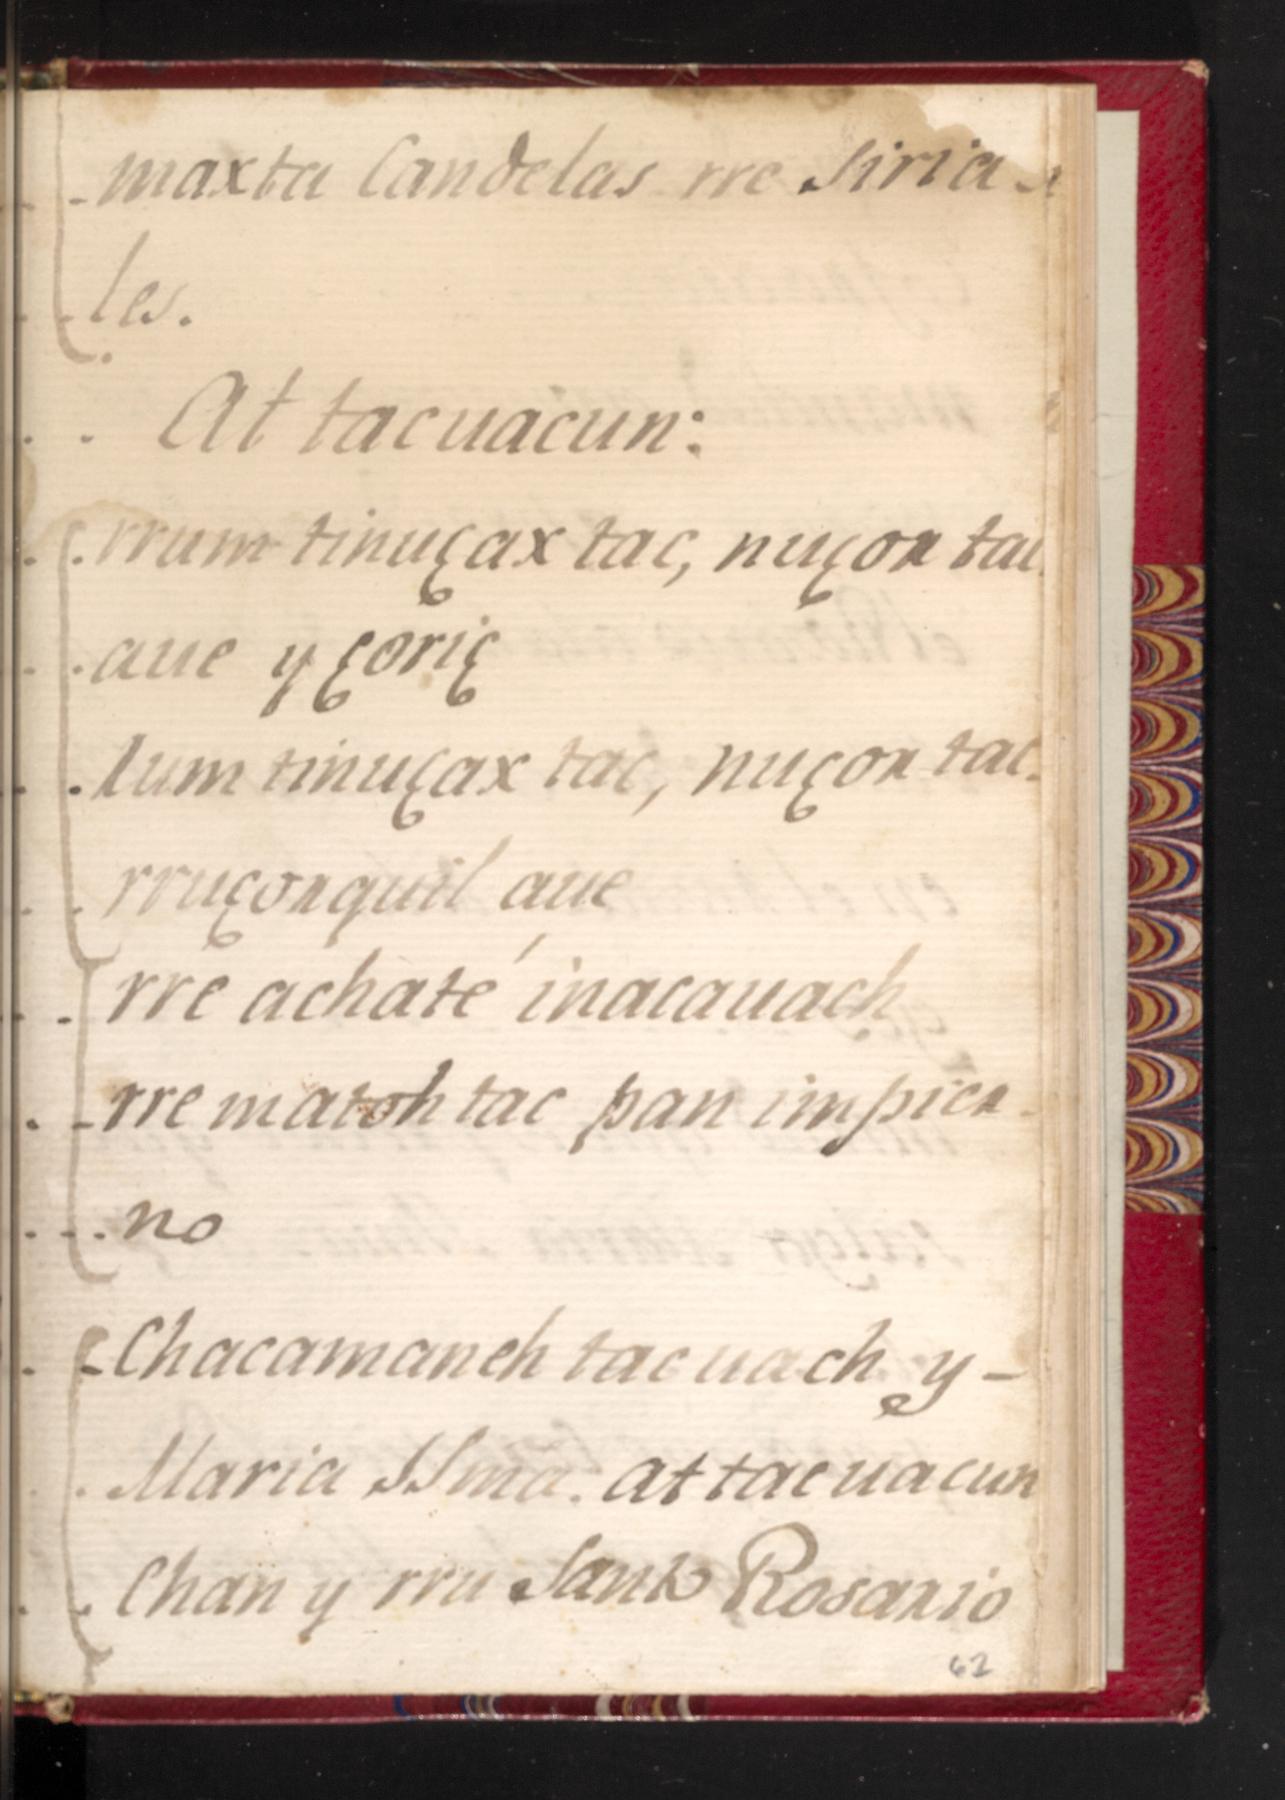 maxta Candelas rre siria-
les.
At tacuacun:
rrum tinuçax tac, nuçon tac
aue y çoriç
lum tinuçax tac, nuçon tac.
rruçonquil aue
rre achaté inacauach
rre matoh tac pan impier-
no
Chacamaneh tacuach y-
Maria SSma. at tacuacun
Chan y rru Santo Rosario
62